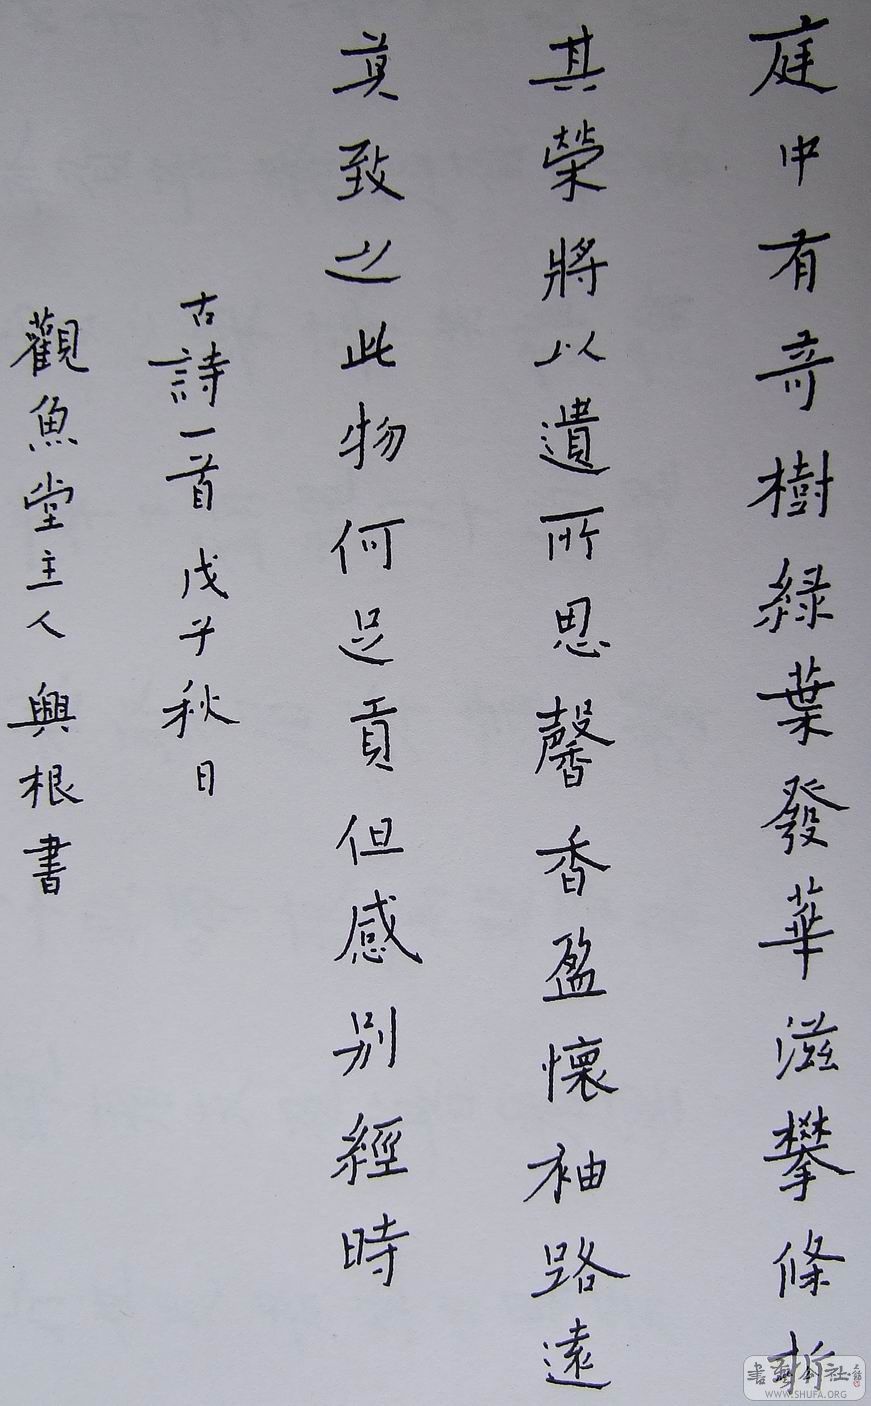 庭中有奇樹綠葉發華滋攀條折
其榮將以遺所思馨香盈懷袖路遠
莫致之此物何足貢但感別經時
古詩一首戊子秋日
觀魚堂主人興根書
書藝公社
WWW.SHUFA.ORG